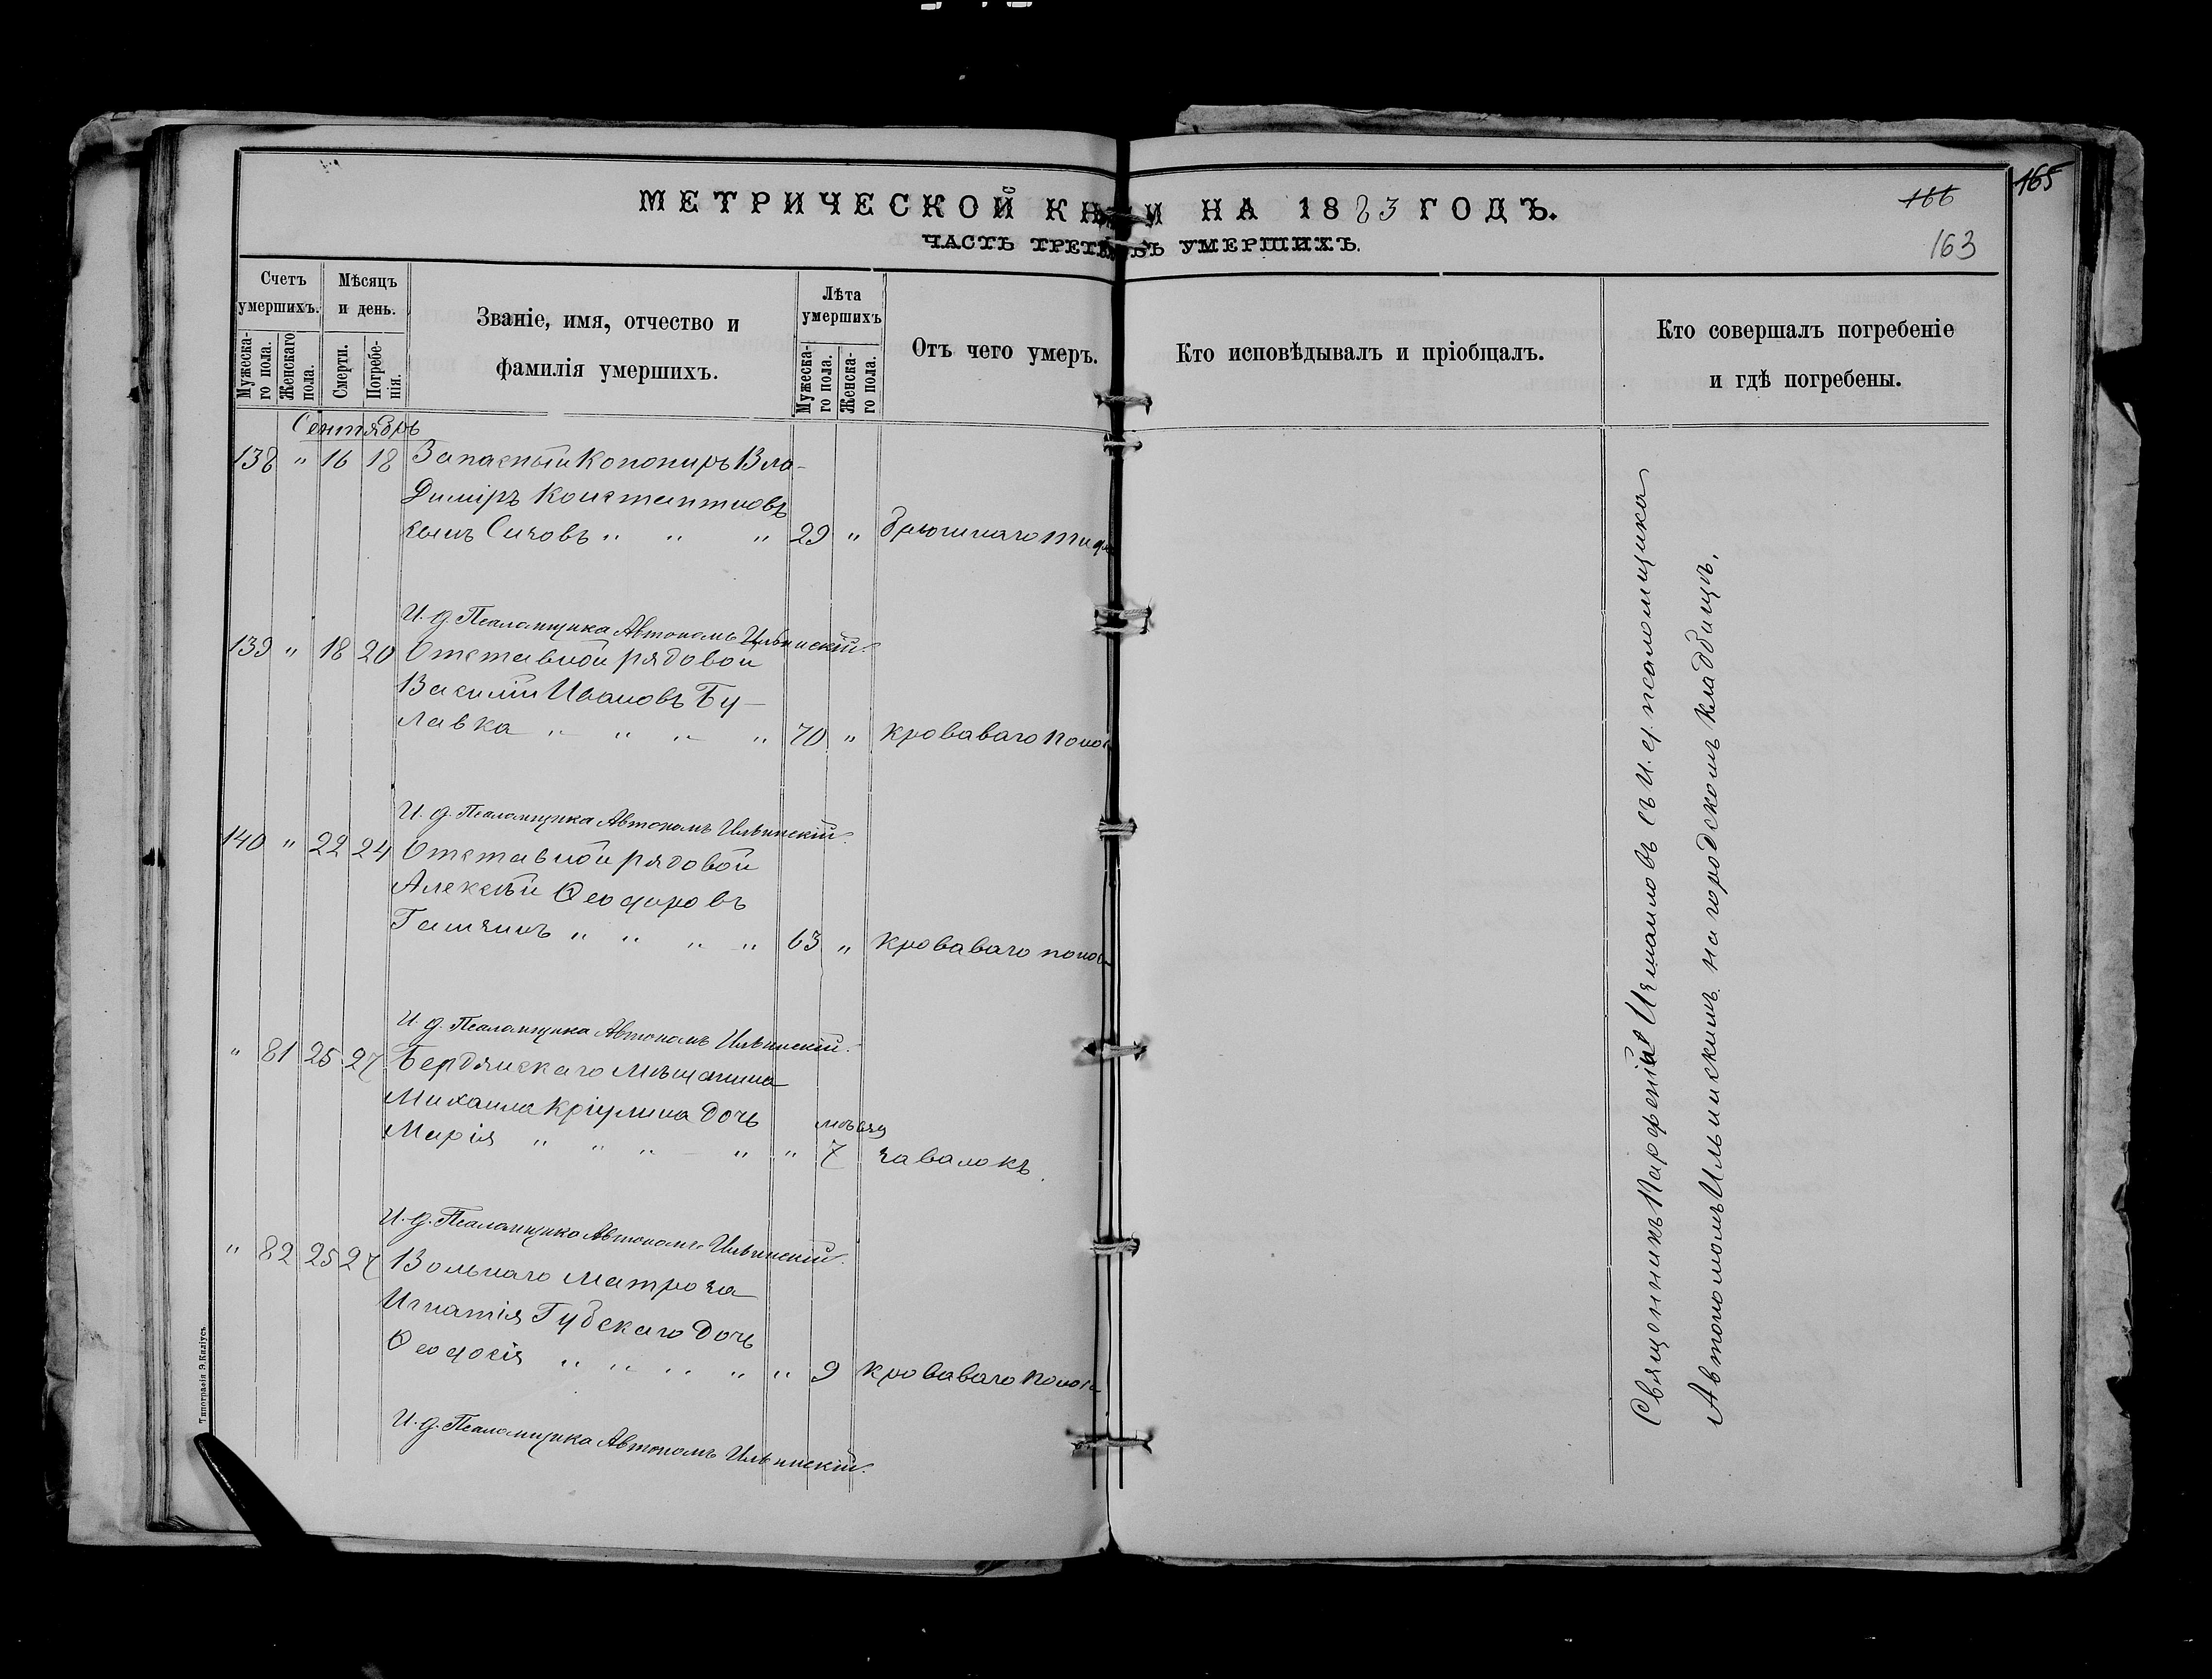 МЕТРИЧЕСКОЙ КНИ НА 1883 ГОДЪ.
ЧАСТЬ ТРЕТЬ УМЕРШИХЪ.
166
165
163
Счетъ умершихъ.
Мужеска-го пола.
Женскаго пола.
Мѣсяцъ и день.
Смерти.
Погребе-нія.
Званіе, имя, отчество и
фамилія умершихъ.
Лѣта умершихъ
Мужеска-го пола.
Женска-го пола.
Отъ чего умеръ.
Кто исповѣдывалъ и пріобщалъ.
Кто совершалъ погребеніе
и гдѣ погребены.
Сентябрь
138 " 16 18 Запасный Канониръ Вла-
диміръ Константиновъ
сынъ " " " 29 " брюшнаго тифа
И. д. Псаломщика Автономъ Ильинскій.
139 " 18 20 Отставной рядовой
Василій Ивановъ Бу-
лавка " " " " 70 " кроваваго понос
И. д. Псаломщика Автономъ Ильинскій.
140 " 22 24 Отставной рядовой
Алексѣй Ѳеодоровъ
" " " " 63 " кроваваго понос
И. д. Псаломщика Автономъ Ильинскій.
" 81 25 27 Бердянскаго мѣщанина
Михаила дочь
Марія " " " " " мѣсяц 7 завалокъ.
И. д. Псаломщика Автономъ Ильинскій.
" 82 25 27 Вольнаго матроза
Игнатія Губскаго дочь
Ѳеодосія " " " " " 9 кроваваго понос
И. д. Псаломщика Автономъ Ильинскій.
Священникъ Парфеній Измаиловъ съ И. д. псаломщика
Автономомъ Ильинскимъ на городскомъ кладбищѣ.
Типографія Э. Киліусъ